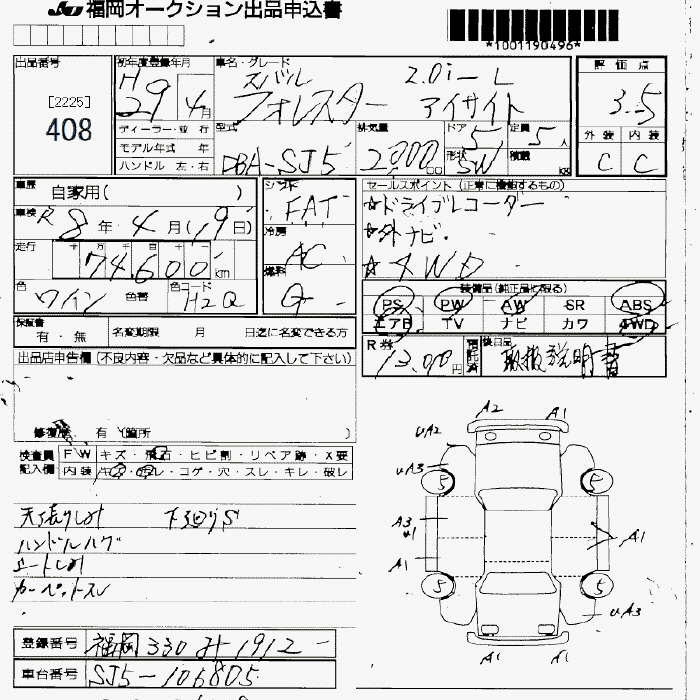 JU 福岡オークション出品申込書
*1001190496*
出品番号
[2225]
408
初年度登録年月
H29 4月
車名・グレード
スバル 2.0i-L
フォレスター アイサイト
評価点
3.5
外装 内装
C C
ディーラー・並行
モデル年式 年
ハンドル 左・右
型式
DBA-SJ5
排気量
2000cc
ドア 5
形状 SW
定員 5人
積載 kg
車歴
自家用( )
車検 R8年4月(19日)
走行
十 万 千 百 十 一
74,600km
色 ワイン 色替 色コード H2Q
シフト
FAT
冷房
AC
燃料
G
セールスポイント (正常に機能するもの)
☆ドライブレコーダー
☆外ナビ
☆4WD
装備品(純正品に限る)
PS PW AW SR ABS
エアB TV ナビ カワ 4WD
保証書
有・無
名変期限 月 日迄に名変できる方
R券
13,010円
預託済
後日品
取扱説明書
出品店申告欄(不良内容・欠品など具体的に記入して下さい)
修復歴 有 (箇所 )
検査員
記入欄
F/W キズ・飛石・ヒビ割・リペア跡・X要
内装 キズ・スレ・コゲ・穴・スレ・キレ・破レ
天張りしみ 下回りS
ハンドルハゲ
シートしみ
カーペットスレ
A2 A1
UA2
UA3
5 5
A3
A1
A1
5 5
UA3
A1 A1
登録番号 福岡330 1912
車台番号 SJ5-106805